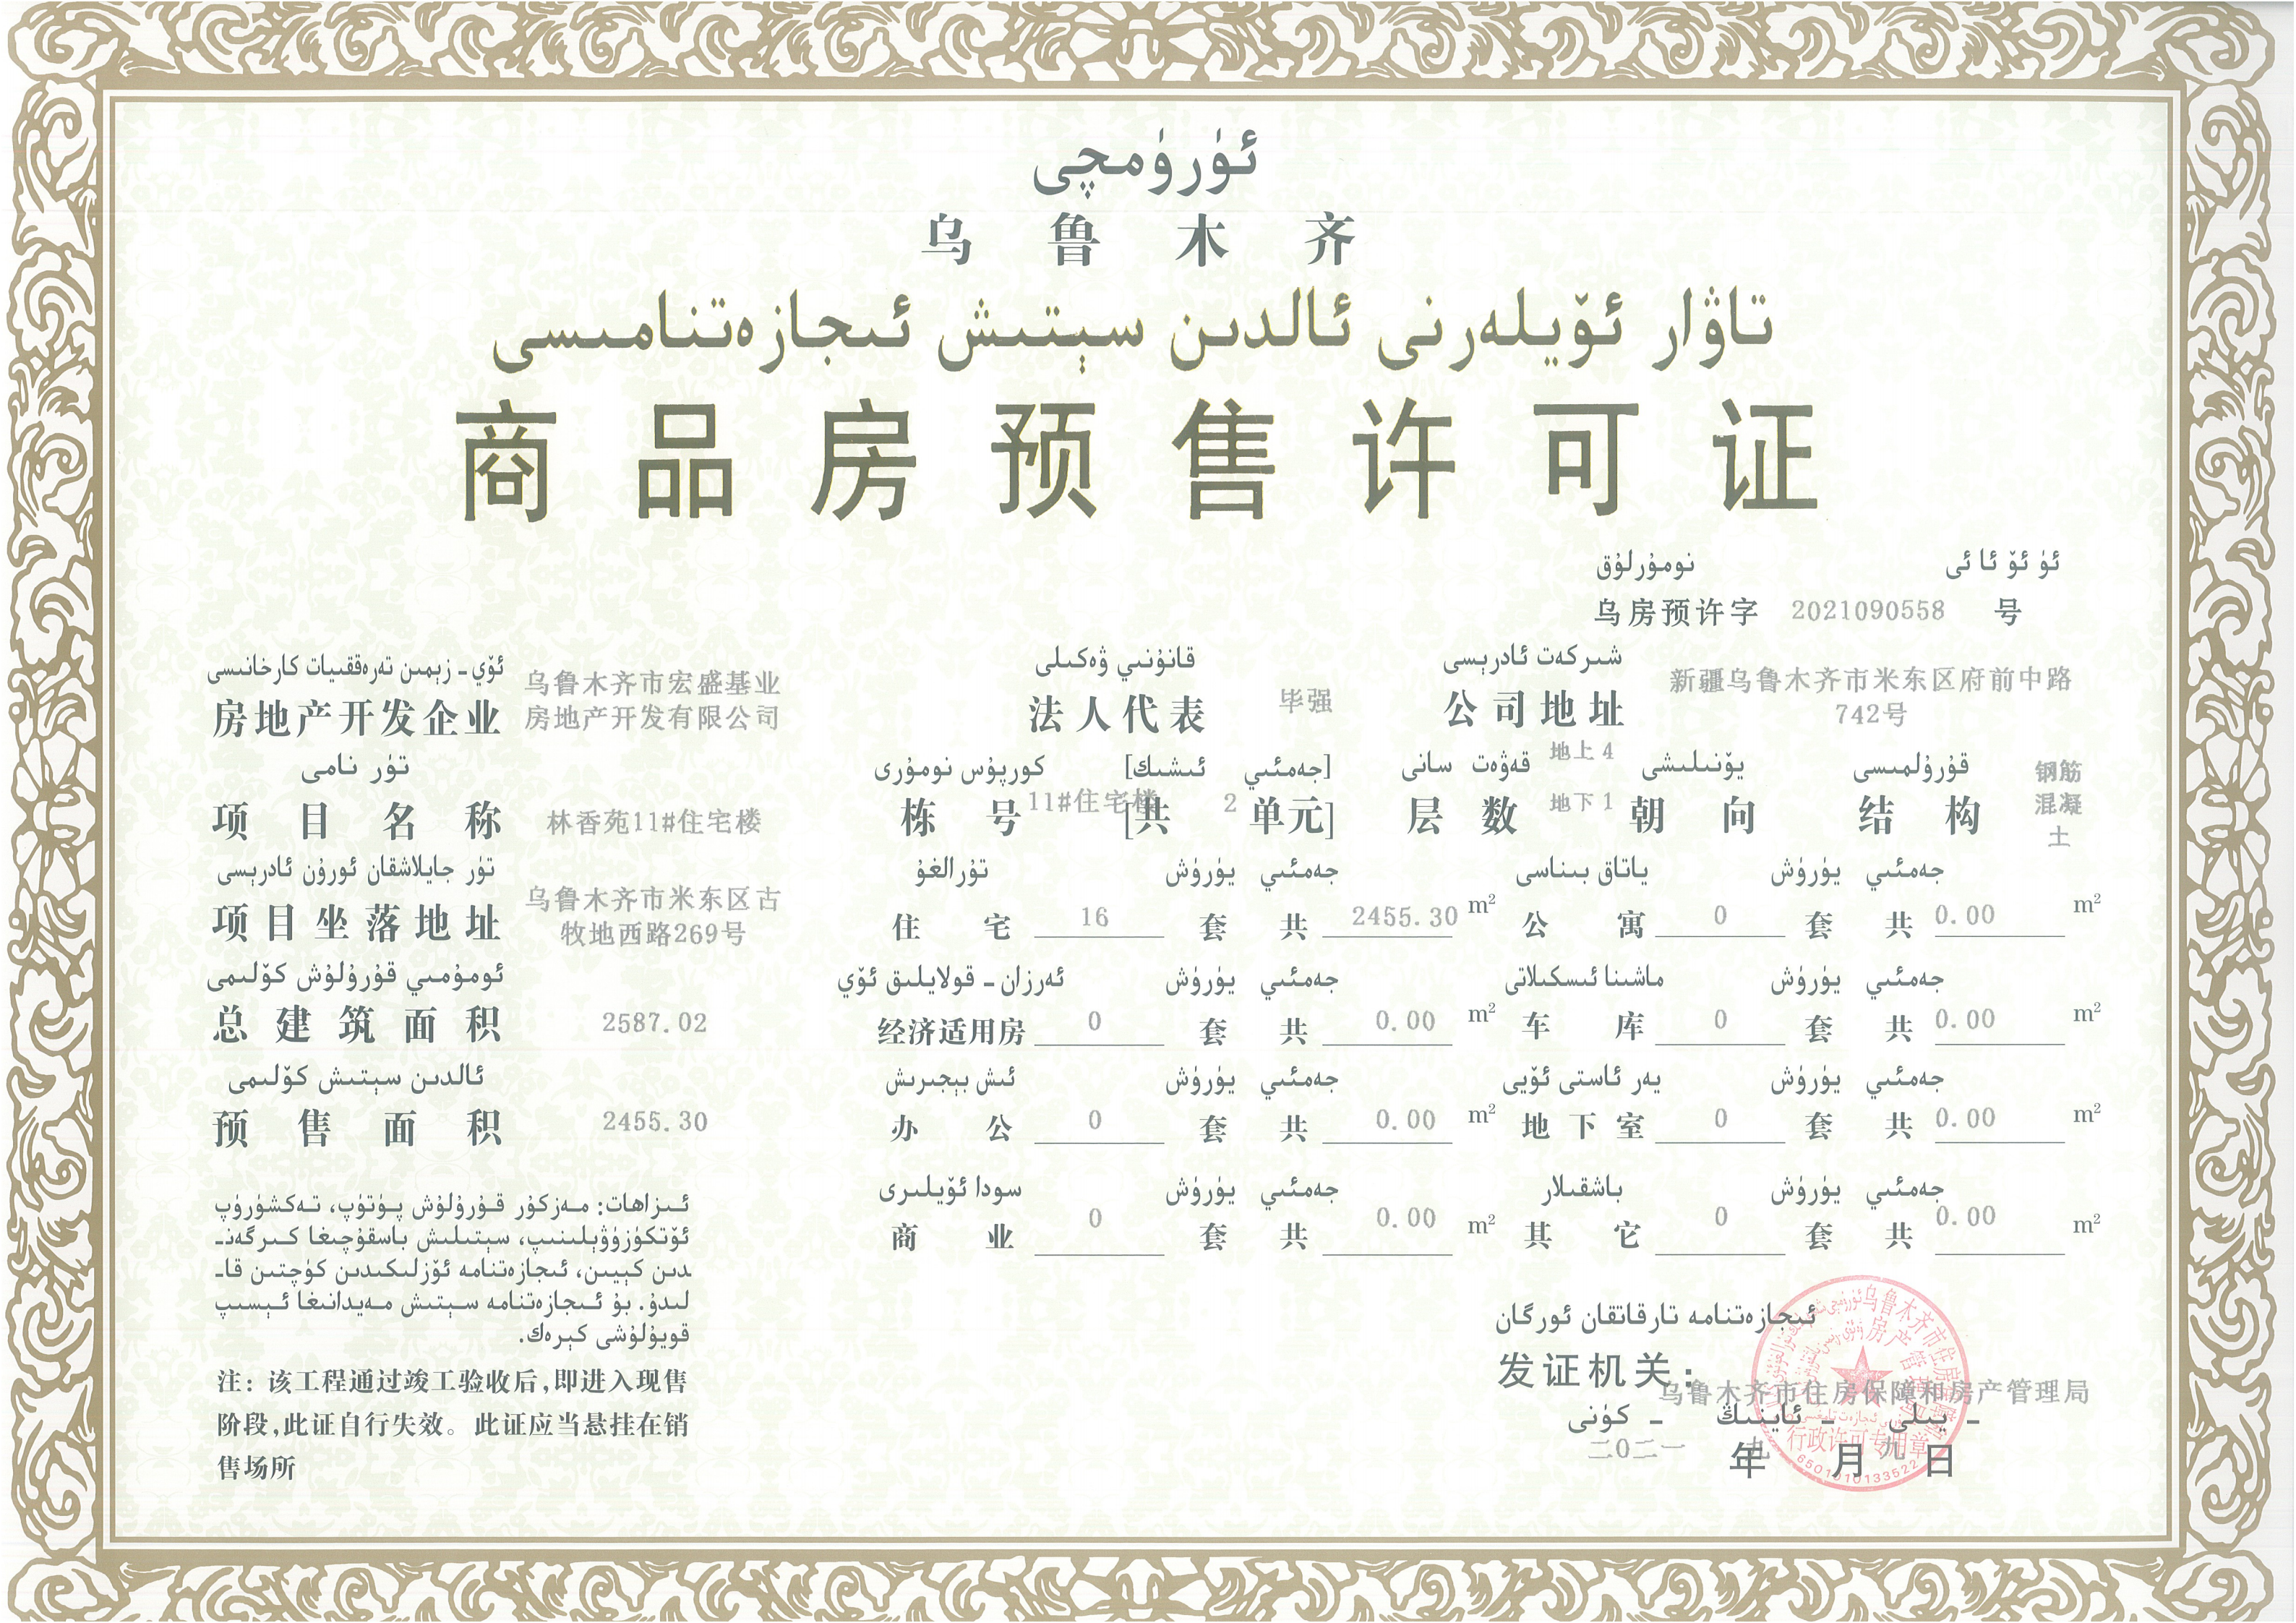 ئۈرۈمچى
乌鲁木齐
تاۋار ئۆيلەرنى ئالدىن سېتىش ئىجازەتنامىسى
商品房预售许可证
ئۈ ئۆ ئا ئى نومۇرلۇق
乌房预许字 2021090558 号
ئۆي - زېمىن تەرەققىيات كارخانىسى
房地产开发企业 乌鲁木齐市宏盛基业
房地产开发有限公司
قانۇنىي ۋەكىلى
法人代表 毕强
شىركەت ئادرېسى
公司地址 新疆乌鲁木齐市米东区府前中路
742号
تۈر نامى
项目名称 林香苑11#住宅楼
كورپۇس نومۇرى [جەمئىي ئىشىك]
栋号 11#住宅楼 [共 2 单元]
قەۋەت سانى
层数 地上 4
地下 1
يۆنىلىشى
朝向
قۇرۇلمىسى
结构 钢筋
混凝
土
تۈر جايلاشقان ئورۇن ئادرېسى
项目坐落地址 乌鲁木齐市米东区古
牧地西路269号
تۇرالغۇ يۈرۈش جەمئىي
住宅 16 套 共 2455.30 m²
ياتاق بىناسى يۈرۈش جەمئىي
公寓 0 套 共 0.00 m²
ئومۇمىي قۇرۇلۇش كۆلىمى
总建筑面积 2587.02
ئەرزان - قولايلىق ئۆي يۈرۈش جەمئىي
经济适用房 0 套 共 0.00 m²
ماشىنا ئىسكىلاتى يۈرۈش جەمئىي
车库 0 套 共 0.00 m²
ئالدىن سېتىش كۆلىمى
预售面积 2455.30
ئىش بېجىرىش يۈرۈش جەمئىي
办公 0 套 共 0.00 m²
يەر ئاستى ئۆيى يۈرۈش جەمئىي
地下室 0 套 共 0.00 m²
سودا ئۆيلىرى يۈرۈش جەمئىي
商业 0 套 共 0.00 m²
باشقىلار يۈرۈش جەمئىي
其它 0 套 共 0.00 m²
ئىزاھات: مەزكۇر قۇرۇلۇش پۈتۈپ، تەكشۈرۈپ
ئۆتكۈزۈۋېلىنىپ، سېتىلىش باسقۇچىغا كىرگەنـ
دىن كېيىن، ئىجازەتنامە ئۆزلىكىدىن كۈچتىن قاـ
لىدۇ. بۇ ئىجازەتنامە سېتىش مەيدانىغا ئېسىپ
قويۇلۇشى كېرەك.
注：该工程通过竣工验收后，即进入现售
阶段，此证自行失效。此证应当悬挂在销
售场所
ئىجازەتنامە تارقاتقان ئورگان
发证机关：
乌鲁木齐市住房保障和房产管理局
- يىلى - ئاينىڭ - كۈنى
二〇二一 年 九 月 九 日
行政许可专用章
6501010133522